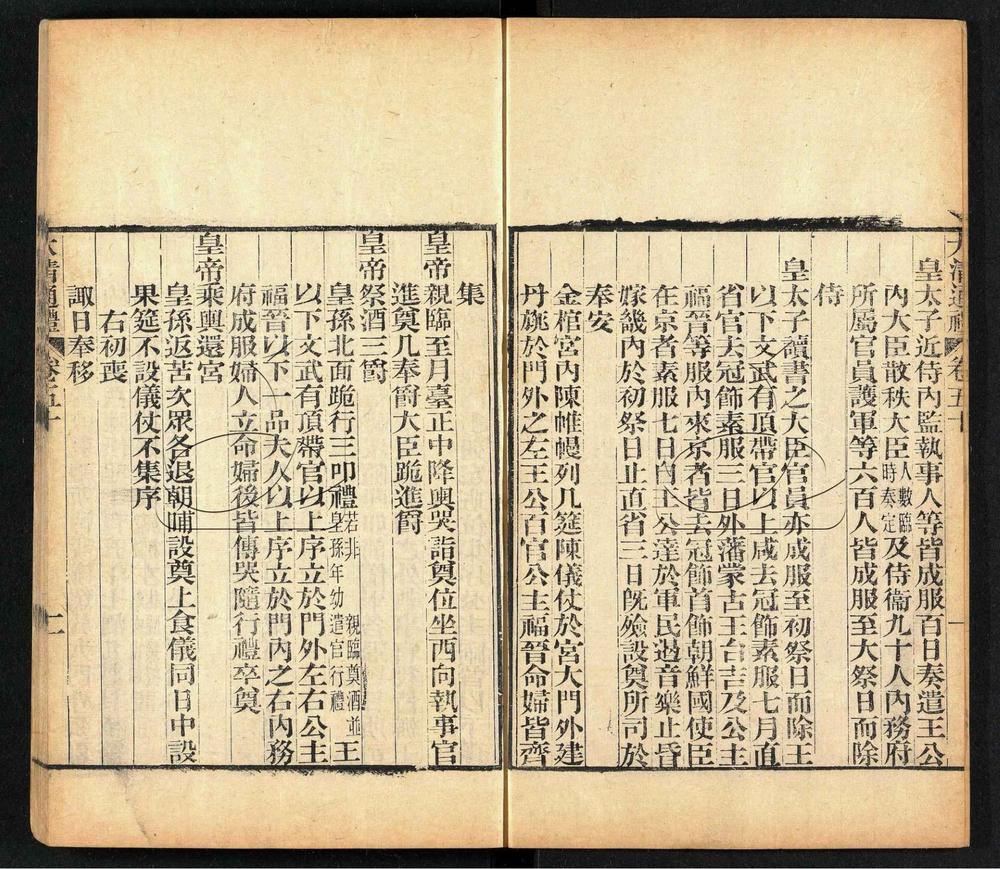 大清通禮 卷五十 一
皇太子近侍內監執事人等皆成服百日奏遣王公
內大臣散秩大臣人數臨時奏定及侍衛九十人內務府
所屬官員護軍等六百人皆成服至大祭日而除
侍
皇太子讀書之大臣官員亦成服至初祭日而除王
以下文武有頂帶官以上咸去冠飾素服七月直
省官去冠飾素服三日外藩蒙古王台吉及公主
福晉等服內來京者皆去冠飾首飾朝鮮國使臣
在京者素服七日自王公達於軍民遏音樂止昏
嫁畿內於初祭日止直省三日旣殮設奠所司於
奉安
金棺宮內陳帷幔列几筵陳儀仗於宮大門外建
丹旐於門外之左王公百官公主福晉命婦皆齊
集
皇帝親臨至月臺正中降輿哭詣奠位坐西向執事官
進奠几奉爵大臣跪進爵
皇帝祭酒三爵
皇孫北面跪行三叩禮若非親臨奠酒並皇孫年幼遣官行禮王
以下文武有頂帶官以上序立於門外左右公主
福晉以下一品夫人以上序立於門內之右內務
府成服婦人立命婦後皆傳哭隨行禮卒奠
皇帝乘輿還宮
皇孫返苫次眾各退朝晡設奠上食儀同日中設
果筵不設儀仗不集序
右初喪
諏日奉移
大清通禮 卷五十 二